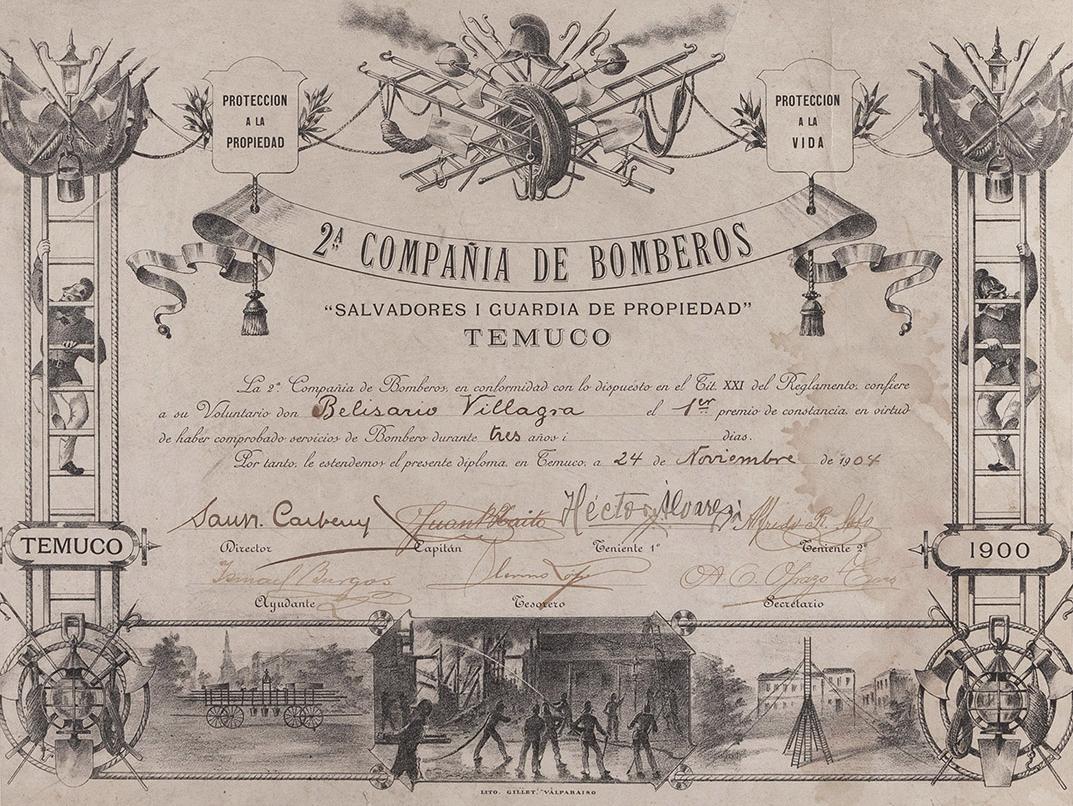 PROTECCION
A LA
PROPIEDAD
PROTECCION
A LA
VIDA
2ª COMPAÑIA DE BOMBEROS
"SALVADORES I GUARDIA DE PROPIEDAD"
TEMUCO
La 2ª Compañia de Bomberos, en conformidad con lo dispuesto en el Tit. XXI del Reglamento, confiere
a su Voluntario don Belisario Villagra el 1er premio de constancia, en virtud
de haber comprobado servicios de Bombero durante tres años i dias.
Por tanto, le estendemos el presente diploma, en Temuco, a 24 de Noviembre de 1904
Héctor Alvarez
Director Capitán Teniente 1º Teniente 2º
TEMUCO
1900
Ismael Burgos
Ayudante Tesorero Secretario
LITO. GILLET. VALPARAISO